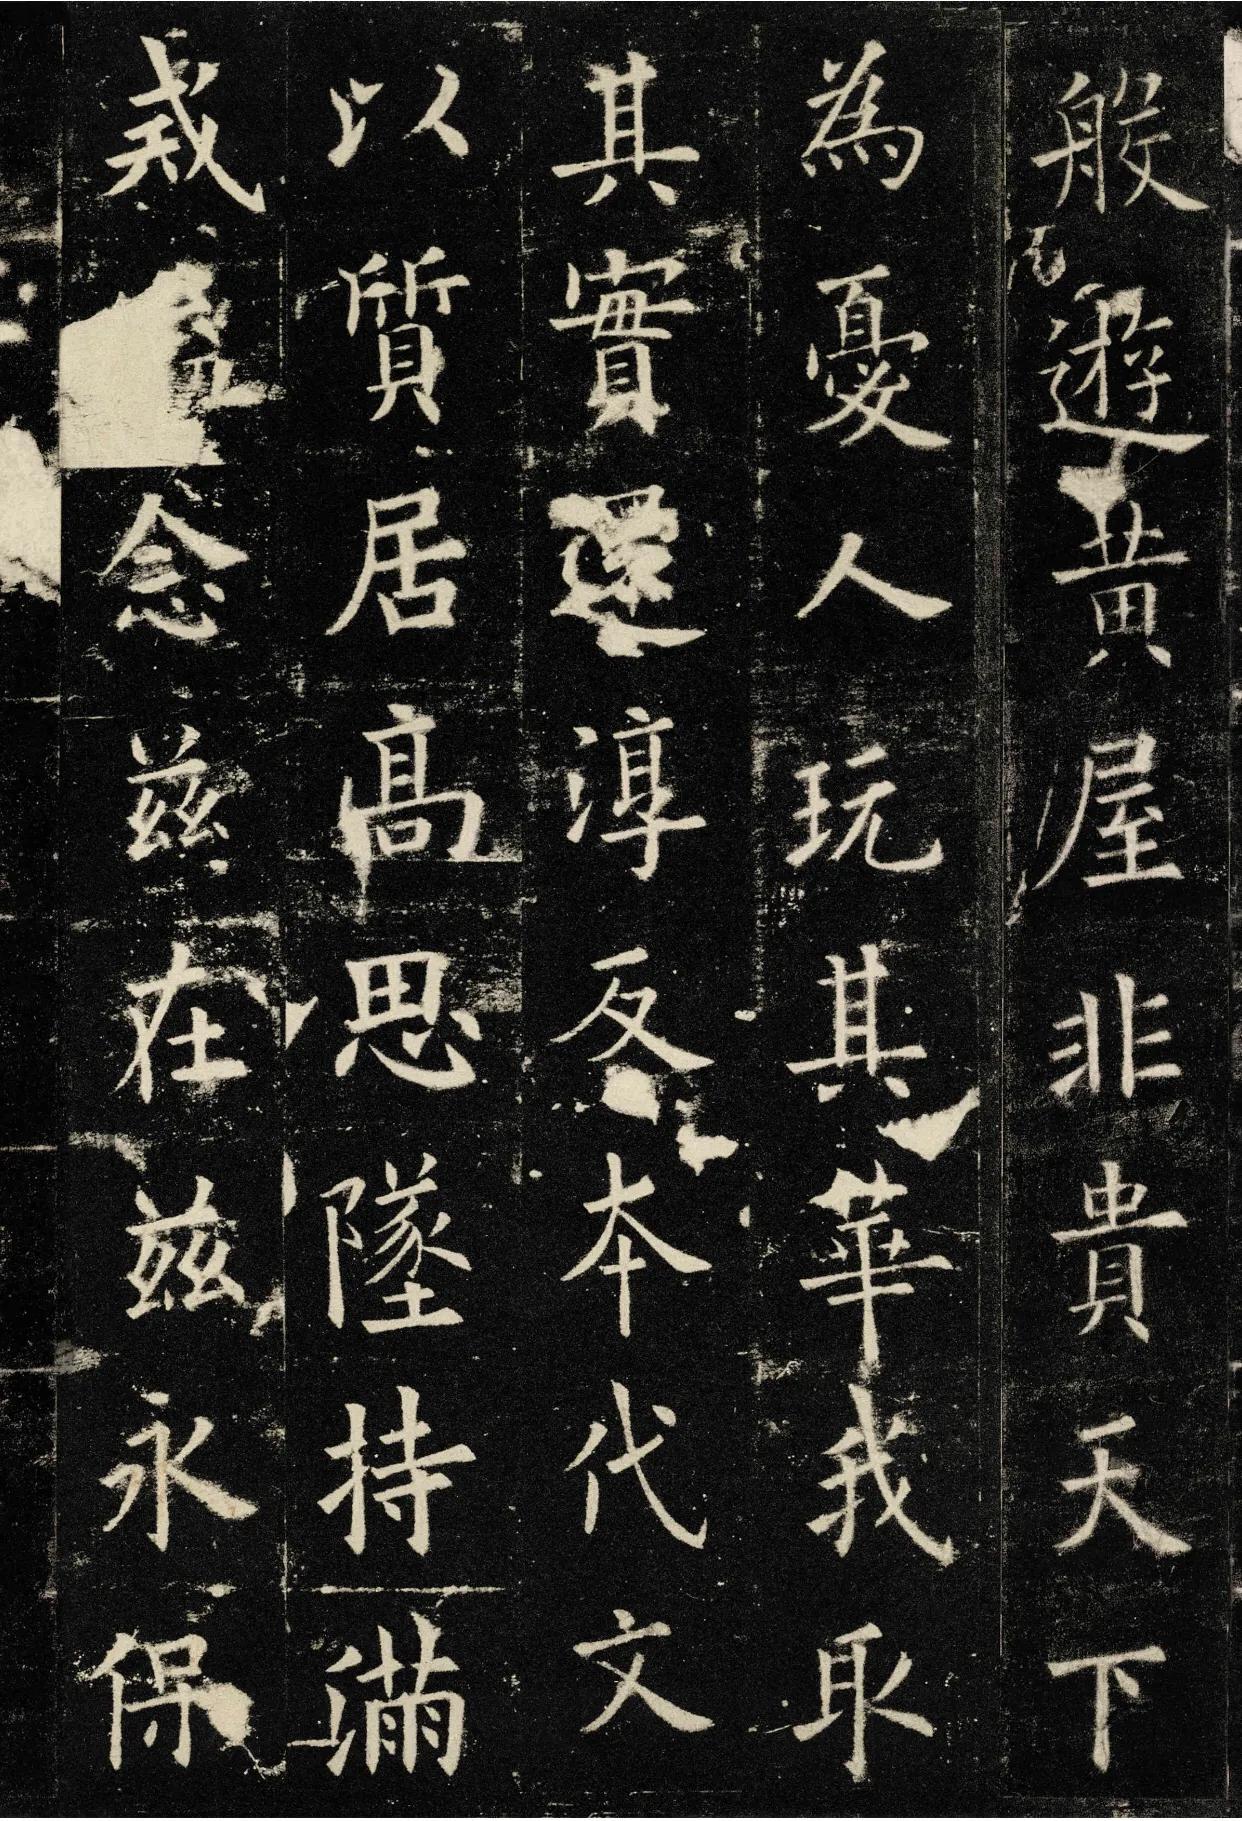 般遊黃屋非貴天下
為憂人玩其華我取
其實還淳反本代文
以質居高思墜持滿
戒念茲在茲永保